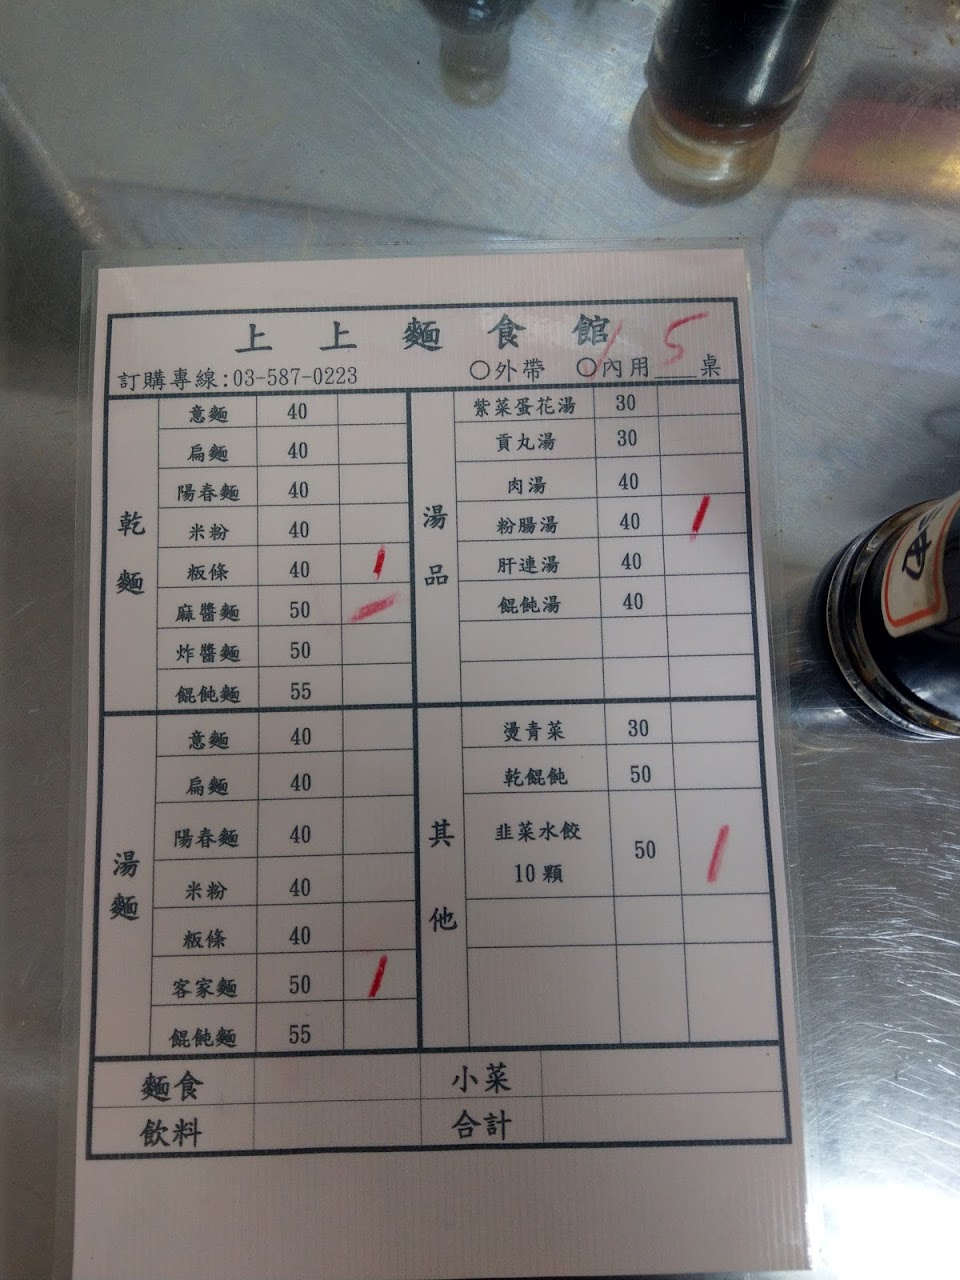 上上麵食館
訂購專線:03-587-0223 ○外帶 ○內用 5 桌
乾麵
意麵 40
扁麵 40
陽春麵 40
米粉 40
粄條 40 /
麻醬麵 50
炸醬麵 50
餛飩麵 55
湯品
紫菜蛋花湯 30
貢丸湯 30
肉湯 40
粉腸湯 40 /
肝連湯 40
餛飩湯 40
湯麵
意麵 40
扁麵 40
陽春麵 40
米粉 40
粄條 40
客家麵 50 /
餛飩麵 55
其他
燙青菜 30
乾餛飩 50
韭菜水餃
10顆 50 /
麵食 小菜
飲料 合計